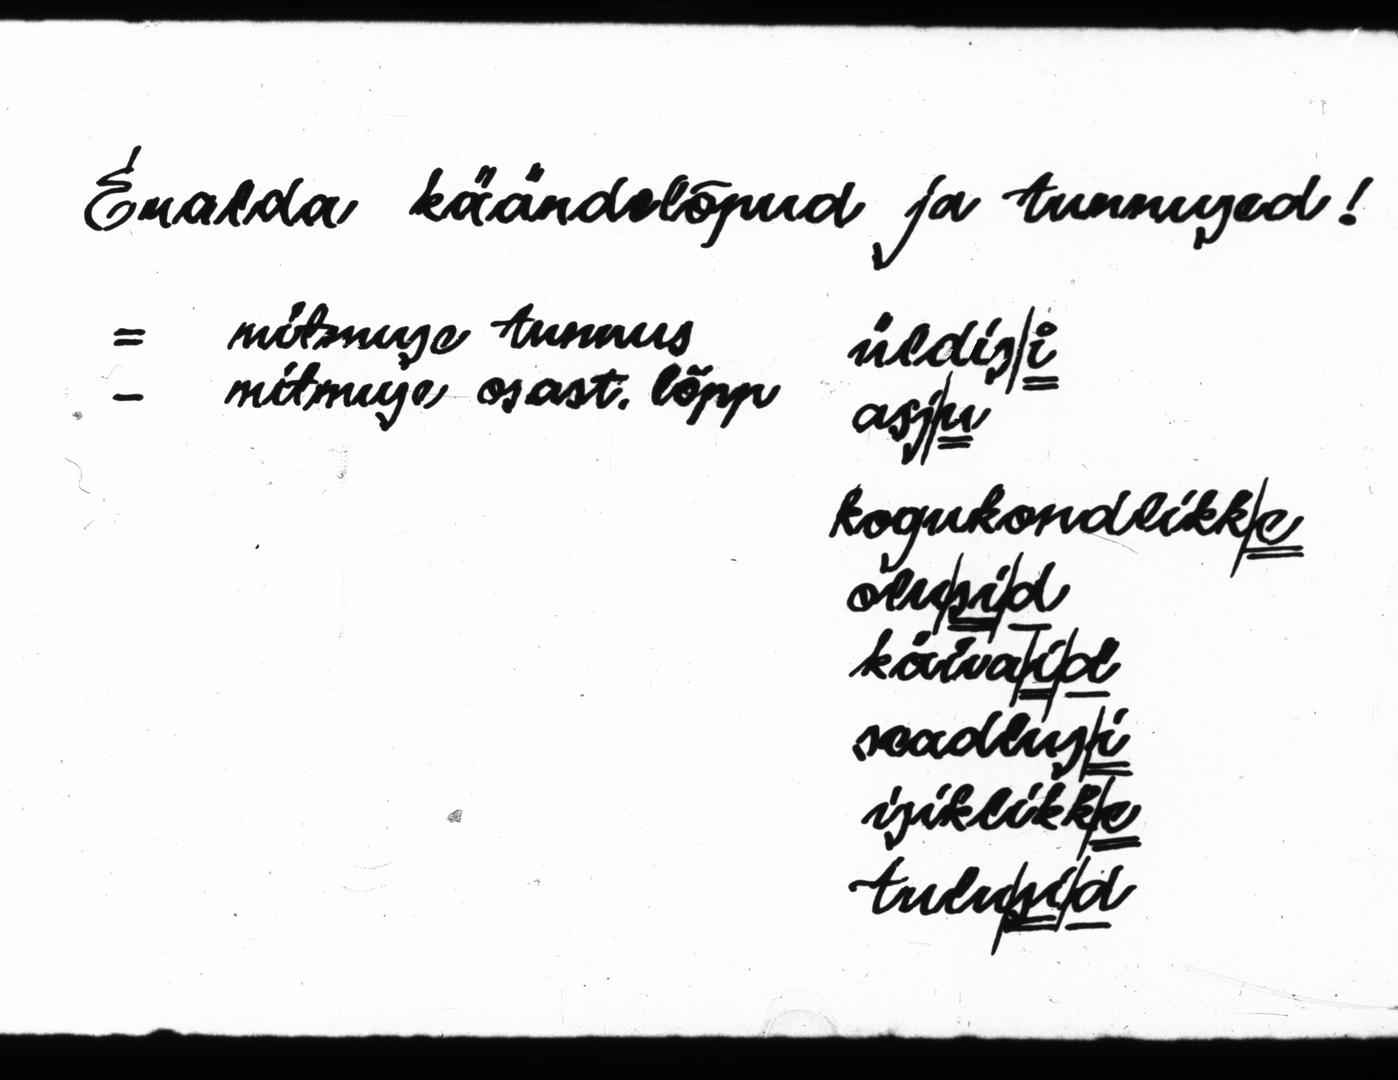 Eralda käändelõpud ja tunnused!
= mitmuse tunnus
- mitmuse osast. lõpp
üldis/i
asj/u
kogukondlikk/e
õlu/si/d
käiva/i/d
seadlus/i
isiklikk/e
tulu/si/d